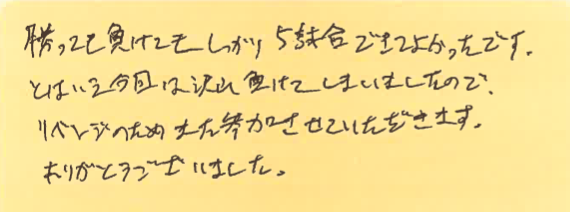 勝っても負けてもしっかり5試合できてよかったです。
とはいえ今回は沢山負けてしまいましたので、
リベンジのためまた参加させていただきます。
ありがとうございました。